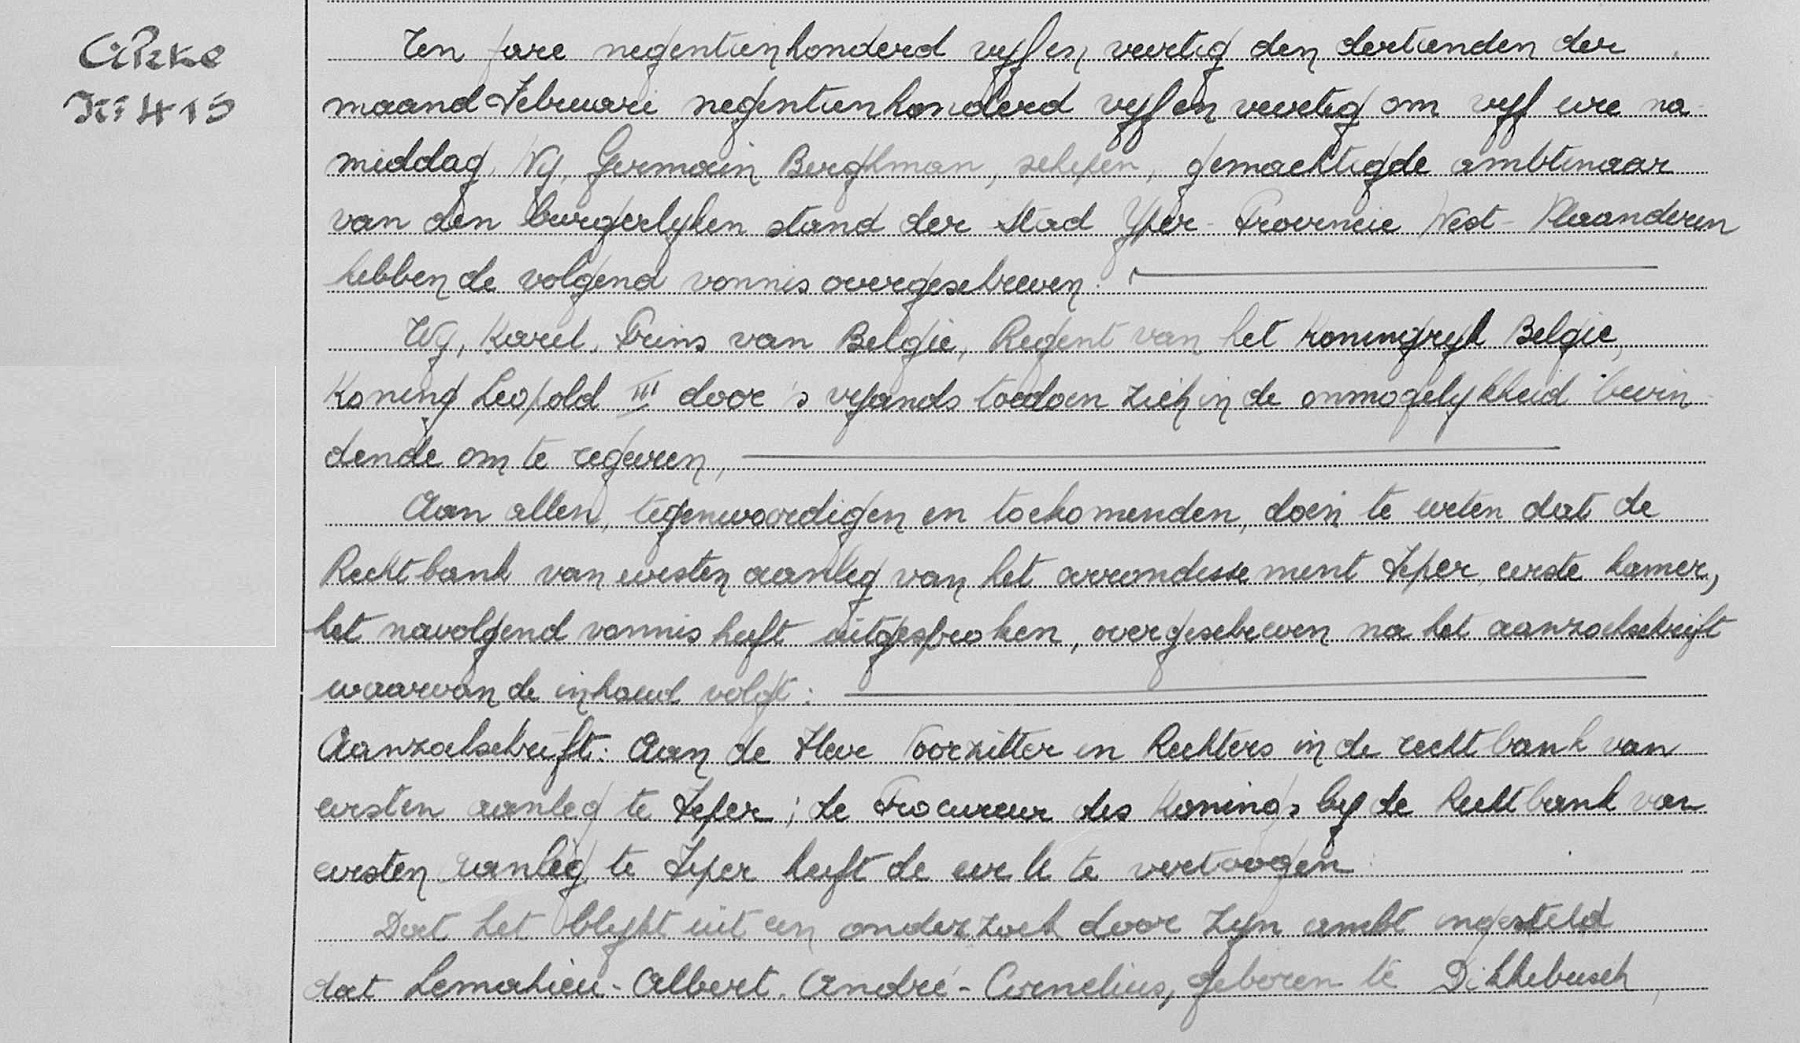 Akte
Nr 415
Ten jare negentienhonderd vijf en veertig den dertienden der
maand Februari negentienhonderd vijf en veertig om vijf ure na-
middag, Wij, Germain Berghman, schepen, gemachtigde ambtenaar
van den burgerlijken stand der stad Yper - Provincie West-Vlaanderen
hebben de volgend vonnis overgeschreven:
Wij, Karel, Prins van België, Regent van het koningrijk België,
Koning Leopold III door 's vijands toedoen zich in de onmogelijkheid bevin-
dende om te regeren,
Aan allen, tegenwoordigen en toekomenden, doen te weten dat de
Rechtbank van eersten aanleg van het arrondissement Ieper, eerste kamer,
het navolgend vonnis heeft uitgesproken, overgeschreven na het aanzoekschrift
waarvan de inhoud volgt:
Aanzoekschrift: Aan de Heer Voorzitter en Rechters in de rechtbank van
eersten aanleg te Ieper; de Procureur des Konings bij de Rechtbank van
eersten aanleg te Ieper heeft de eer U te vertoogen:
Dat het blijkt uit een onderzoek door zijn ambt ingesteld
dat Lemahieu - Albert - André - Cornelius, geboren te Dikkebusch,